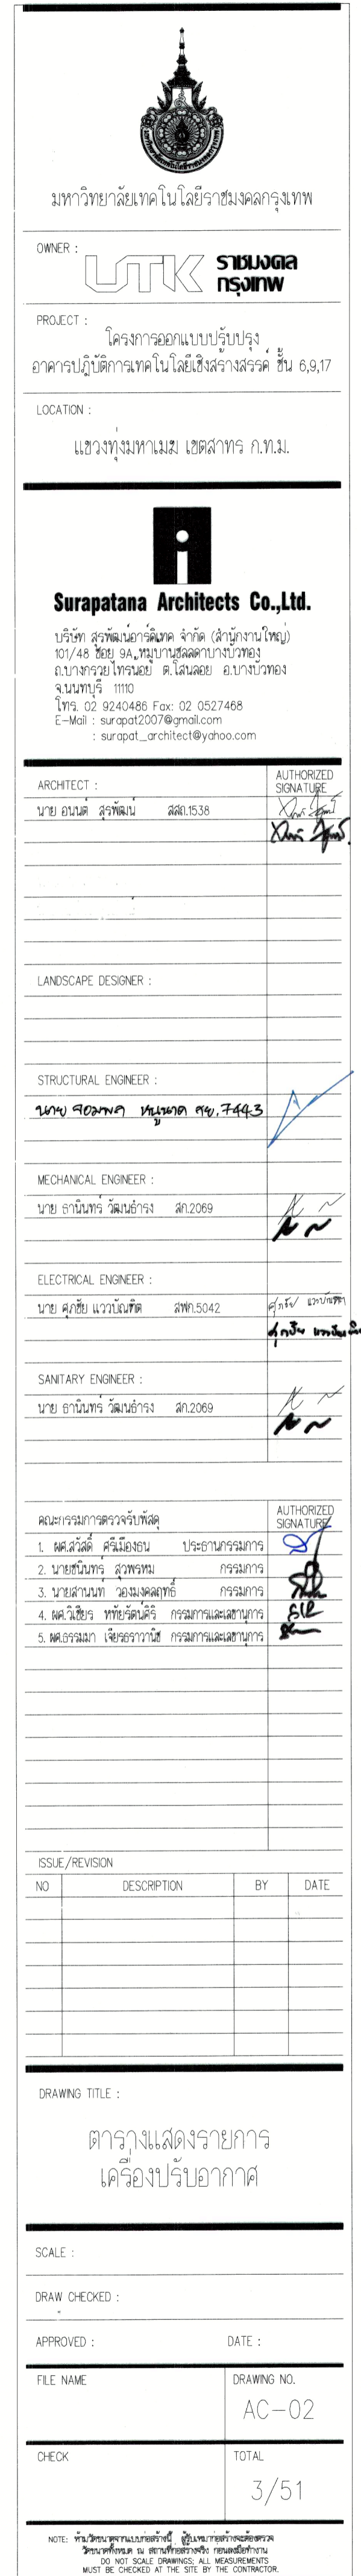 มหาวิทยาลัยเทคโนโลยีราชมงคลกรุงเทพ
OWNER :
UTK ราชมงคล
กรุงเทพ
PROJECT :
โครงการออกแบบปรับปรุง
อาคารปฏิบัติการเทคโนโลยีเชิงสร้างสรรค์ ชั้น 6,9,17
LOCATION :
แขวงทุ่งมหาเมฆ เขตสาทร ก.ท.ม.
Surapatana Architects Co.,Ltd.
บริษัท สุรพัฒน์อาร์คิเทค จำกัด (สำนักงานใหญ่)
101/48 ซอย 9A หมู่บ้านชลลดาบางบัวทอง
ถ.บางกรวยไทรน้อย ต.โสนลอย อ.บางบัวทอง
จ.นนทบุรี 11110
โทร. 02 9240486 Fax: 02 0527468
E-Mail : surapat2007@gmail.com
: surapat_architect@yahoo.com
ARCHITECT :
AUTHORIZED
SIGNATURE
นาย อนนต์ สุรพัฒน์ สสถ.1538
LANDSCAPE DESIGNER :
STRUCTURAL ENGINEER :
นาย จอมพล สย.7443
MECHANICAL ENGINEER :
นาย ธานินทร์ วัฒนธำรง สก.2069
ELECTRICAL ENGINEER :
นาย ศุภชัย แววบัณฑิต สฟก.5042
ศุภชัย แววบัณฑิต
SANITARY ENGINEER :
นาย ธานินทร์ วัฒนธำรง สก.2069
คณะกรรมการตรวจรับพัสดุ
AUTHORIZED
SIGNATURE
1. ผศ.สวัสดิ์ ศรีเมืองธน ประธานกรรมการ
2. นายชนินทร์ สุวพรหม กรรมการ
3. นายสานนท์ วองมงคลฤทธิ์ กรรมการ
4. ผศ.วิเชียร หทัยรัตน์ศิริ กรรมการและเลขานุการ
5. ผศ.ธรรมมา เจียรธราวานิช กรรมการและเลขานุการ
ISSUE/REVISION
NO DESCRIPTION BY DATE
DRAWING TITLE :
ตารางแสดงรายการ
เครื่องปรับอากาศ
SCALE :
DRAW CHECKED :
APPROVED : DATE :
FILE NAME DRAWING NO.
AC-02
CHECK TOTAL
3/51
NOTE: ห้ามวัดขนาดจากแบบก่อสร้างนี้ ผู้รับเหมาก่อสร้างจะต้องตรวจ
วัดขนาดทั้งหมด ณ สถานที่ก่อสร้างจริง ก่อนลงมือทำงาน
DO NOT SCALE DRAWINGS; ALL MEASUREMENTS
MUST BE CHECKED AT THE SITE BY THE CONTRACTOR.